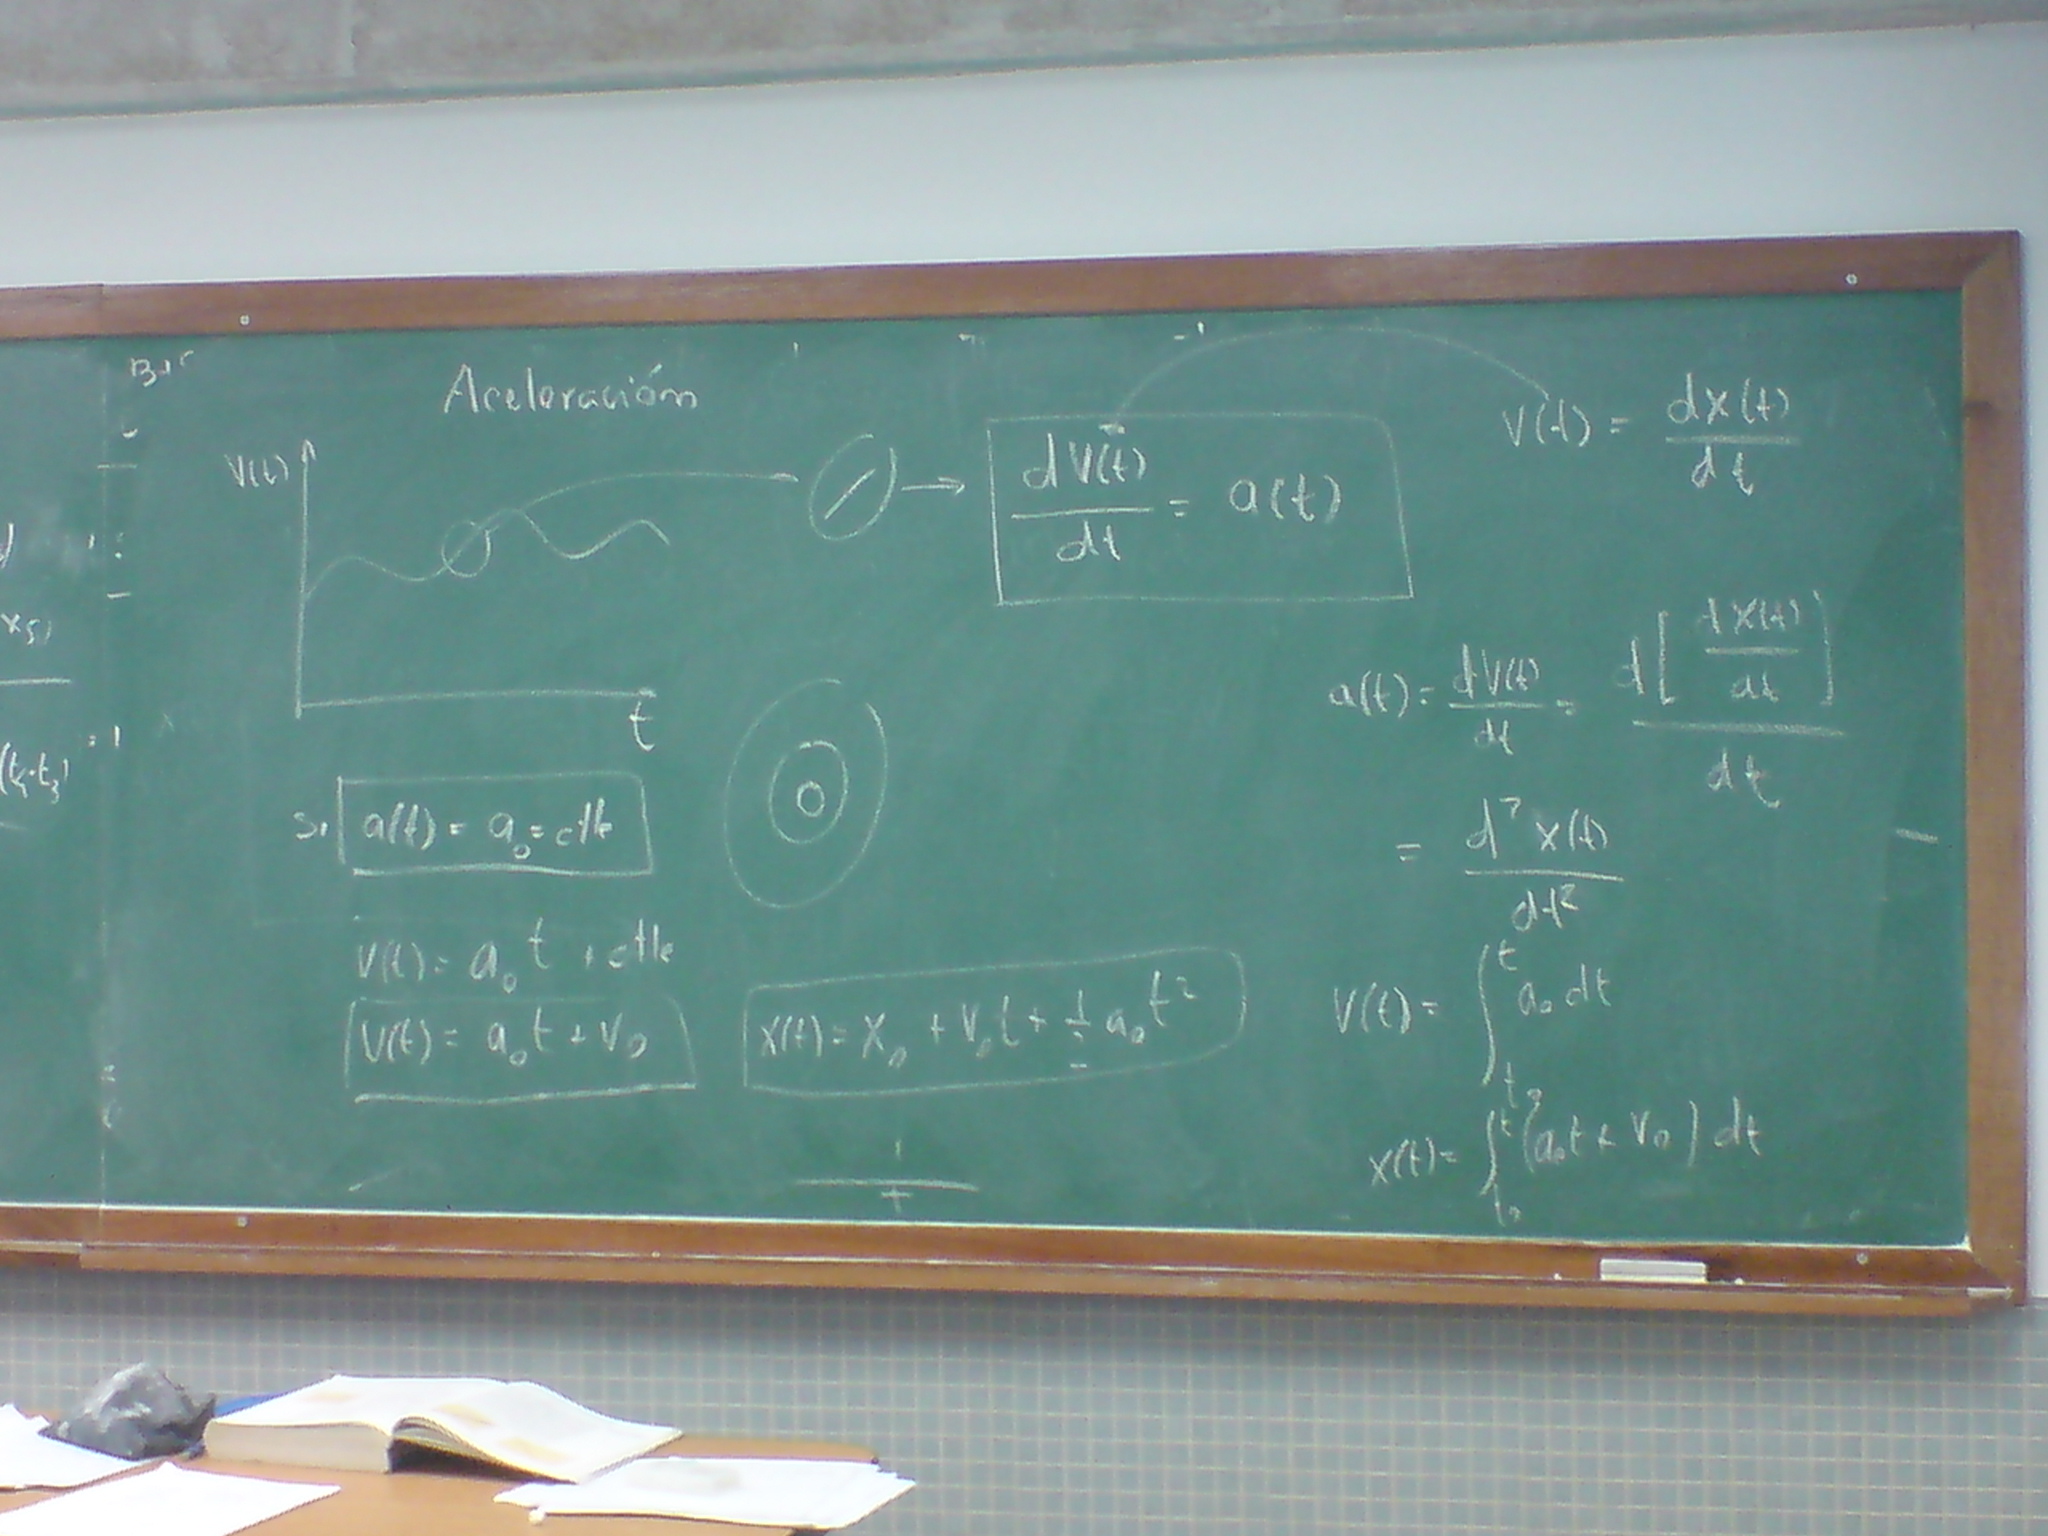 Aceleración
V(t)
t
dV(t)/dt = a(t)
V(t) = dx(t)/dt
a(t) = dV(t)/dt = d[dx(t)/dt]/dt
= d²x(t)/dt²
Si a(t) = a₀ = cte
V(t) = a₀ t + cte
V(t) = a₀ t + V₀
x(t) = x₀ + V₀ t + ½ a₀ t²
V(t) = ∫ₜ₀ᵗ a₀ dt
x(t) = ∫ₜ₀ᵗ (a₀t + V₀) dt